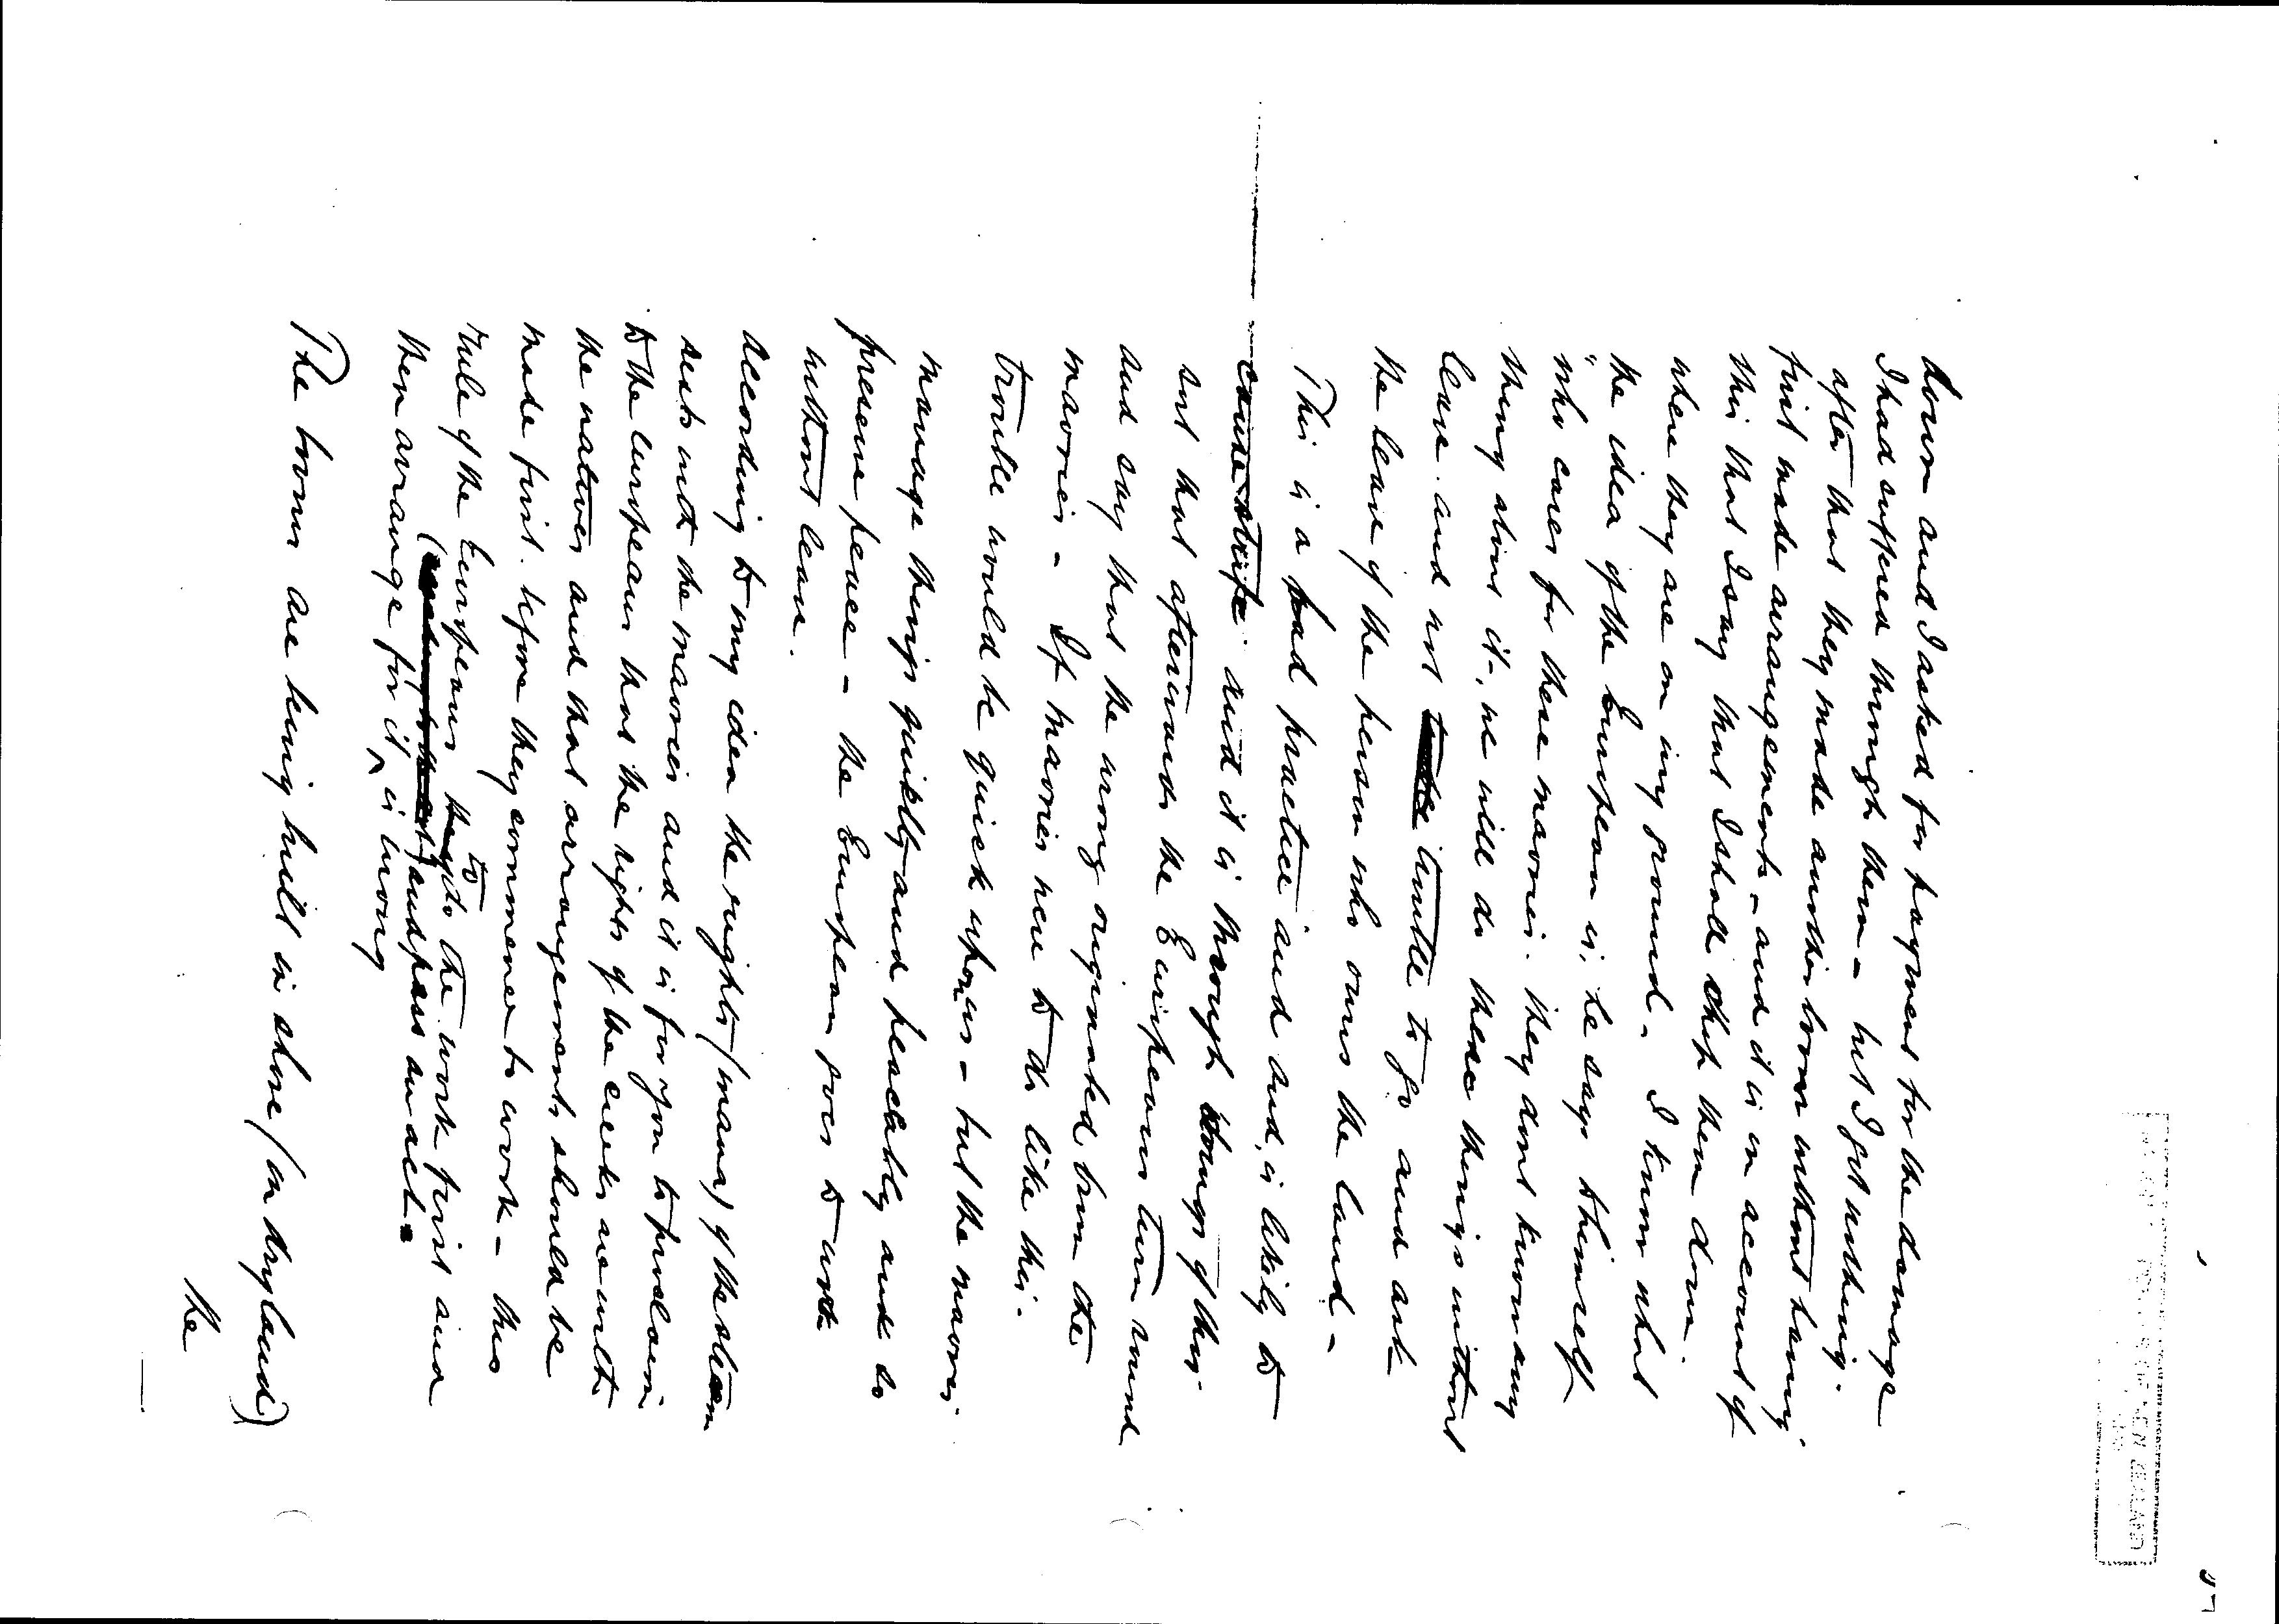 down and I asked for payment for the damage
I had suffered through them – but I got nothing.
after that they made another boom without having
first made arrangements – and it is on account of
this that I say that I shall chop them down.
where they are on my ground. I know what
the idea of the European is, he says to himself
"who cares for these maories. they dont know any
thing about it, we will do these things without
leave and not trouble to go and ask
the leave of the person who owns the land –
This is a bad practice and and, is likely to
cause strife. and it is through doings of this
sort that afterwards the Europeans turn round
and say that the wrong originated from the
maories – If maories were to do like this.
trouble would be quick upon us – but the maories
manage things quickly and peaceably and do
preserve peace – the European goes to work
without leave.
According to my idea the rights (mana) of the stream
rests with the maories and it is for you to proclaim
to the European that the rights of the creeks are with
the natives and that arrangements should be
made first. before they commence to work – this
rule of the Europeans they to do the work first and
then arrange for it, and pass an act is wrong
The booms are being built on shore (on dry land)
the